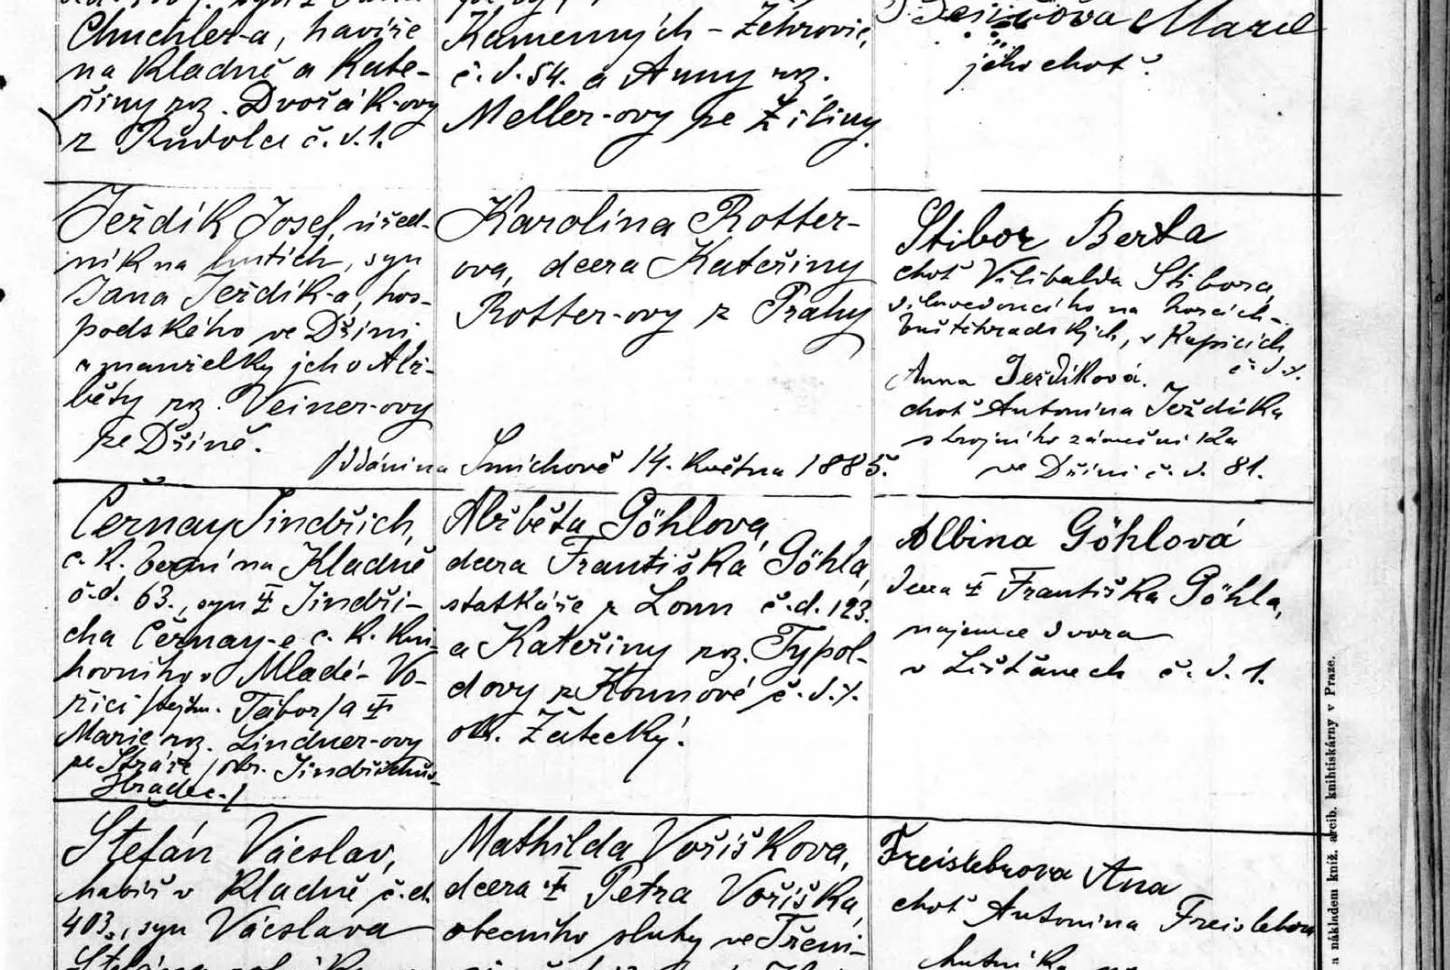 Chuchler-a, havíře
na Kladně a Kate-
řiny roz. Dvořák-ovy
z Rudolci č. d. 1.
Kamenných-Žehrovic,
č. d. 54. a Anny roz.
Meller-ovy ze Žiliny.
Marie
jeho choť.
Ježdík Josef, úřed-
ník na hutích, syn
Jana Ježdík-a, hos-
podského ve Dříni
a manželky jeho Alž-
běty roz. Veiner-ovy
ze Dříně.
Karolina Rotter-
ová, dcera Kateřiny
Rotter-ovy z Prahy
/Oddáni na Smíchově 14. května 1885.
Stibor Berta
choť Vilibalda Stibora,
na
buštěhradských, v Rapicích
č. d.
Anna Ježdíková.
choť Antonína Ježdíka
strojního zámečníka
ve Dříni č. d. 81.
Černay Jindřich,
c. k. berní na Kladně
č. d. 63., syn ‡ Jindři-
cha Černay-e c. k.
v Mladé-Vo-
žici /hejtm. Tábor/ a ‡
Marie roz. Lindner-ovy
ze Stráže /okr. Jindřichův
Hradec./
Alžběta Göhlová,
dcera Františka Göhla,
statkáře z Loun č. d. 123.
a Kateřiny roz. Typol-
dovy z Hounové č. d.
okr. Žatecký.
Albina Göhlová
dcera ‡ Františka Göhla,
najemce dvora
v Lišťanech č. d. 1.
Štefán Václav,
habíř v Kladně č. d.
403., syn Václava
Mathilda Voříškova,
dcera ‡ Petra Voříška,
obecního sluhy ve Třeni-
Freislebnova Ana
choť Antonína Freisleben
a nákladem kníž. arcib. knihtiskárny v Praze.